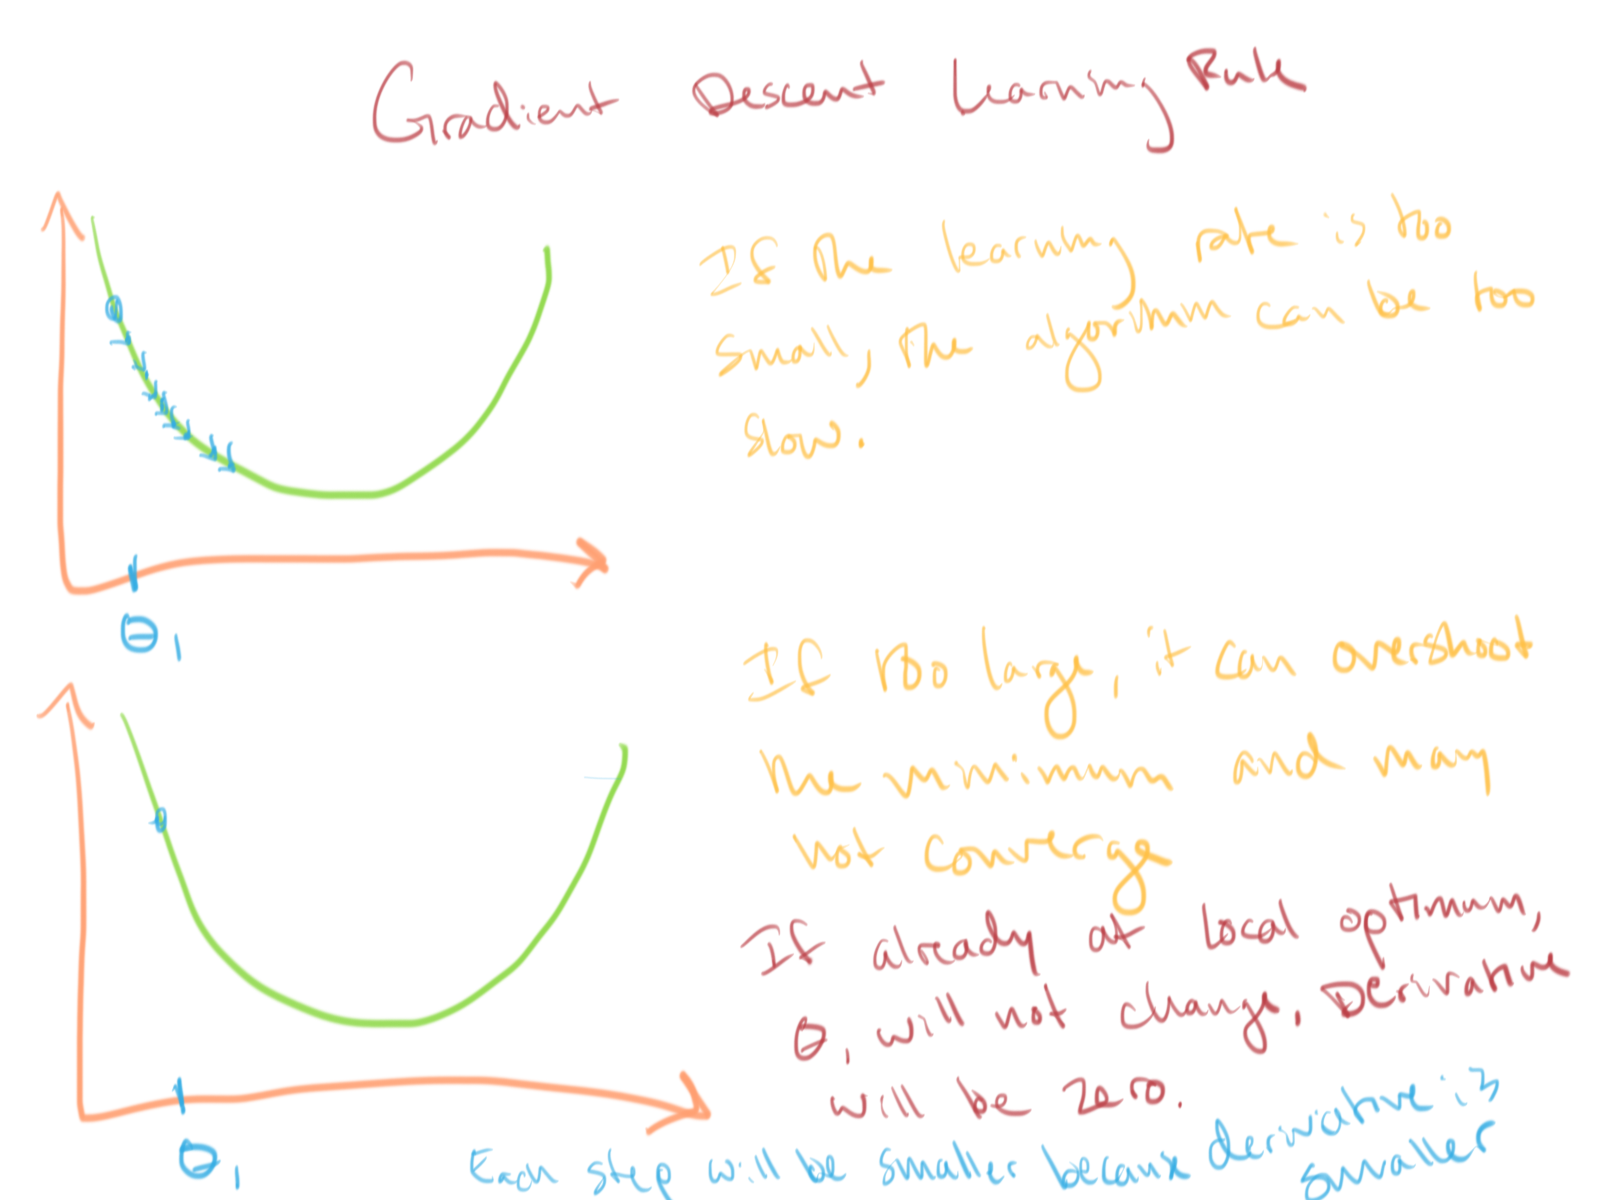 Gradient Descent Learning Rule
If the learning rate is too
small, the algorithm can be too
slow.
θ1
If too large, it can overshoot
the minimum and may
not converge
If already at local optimum,
θ1 will not change. Derivative
will be zero.
θ1
Each step will be smaller because derivative is
smaller